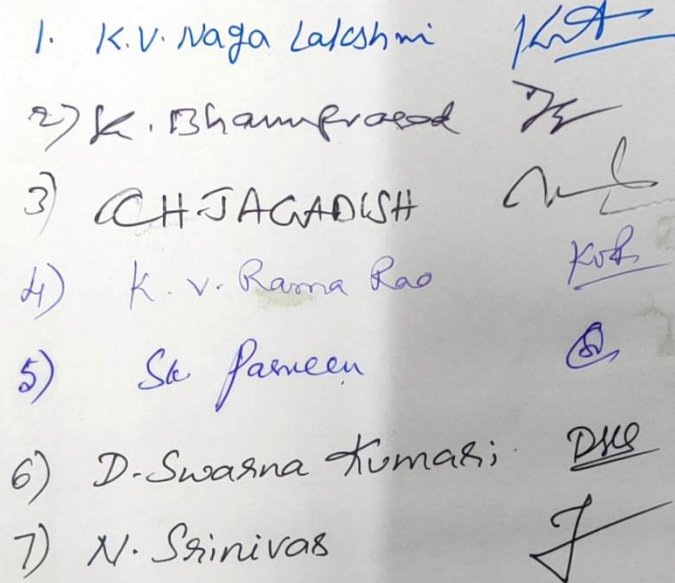 1. K.V. Naga Lakshmi
2) K. Bhanuprasad
3) CH. JAGADISH
4) K. V. Rama Rao KVR
5) Sk Parveen
6) D. Swarna Kumari DKS
7) N. Srinivas